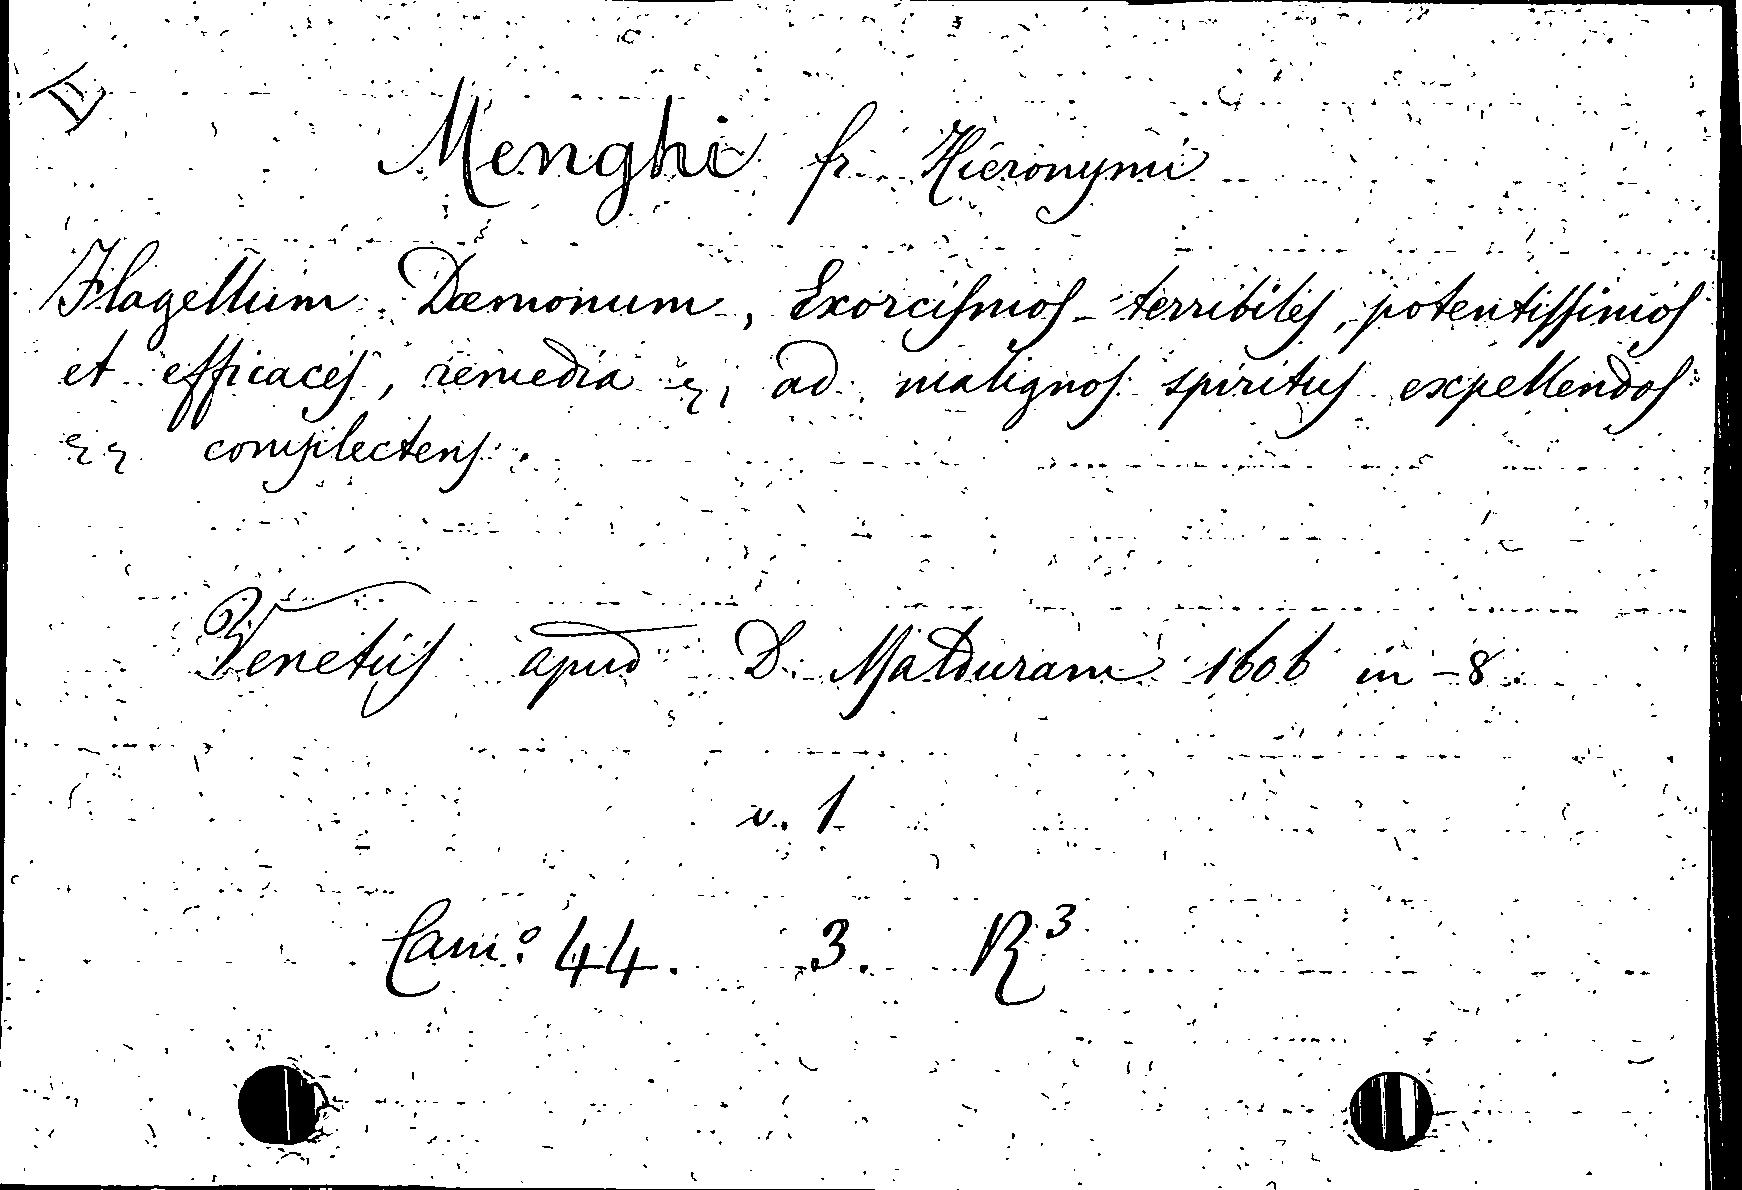 II
Menghi fr. Hieronymi
Flagellum Dæmonum, Exorcismos terribiles, potentissimos
et efficaces, remedia &, ad malignos spiritus expellendos
&& complectens.
Venetiis apud D. Malduram 1606 in-8.
v. 1
Cam.º 44. 3. R³